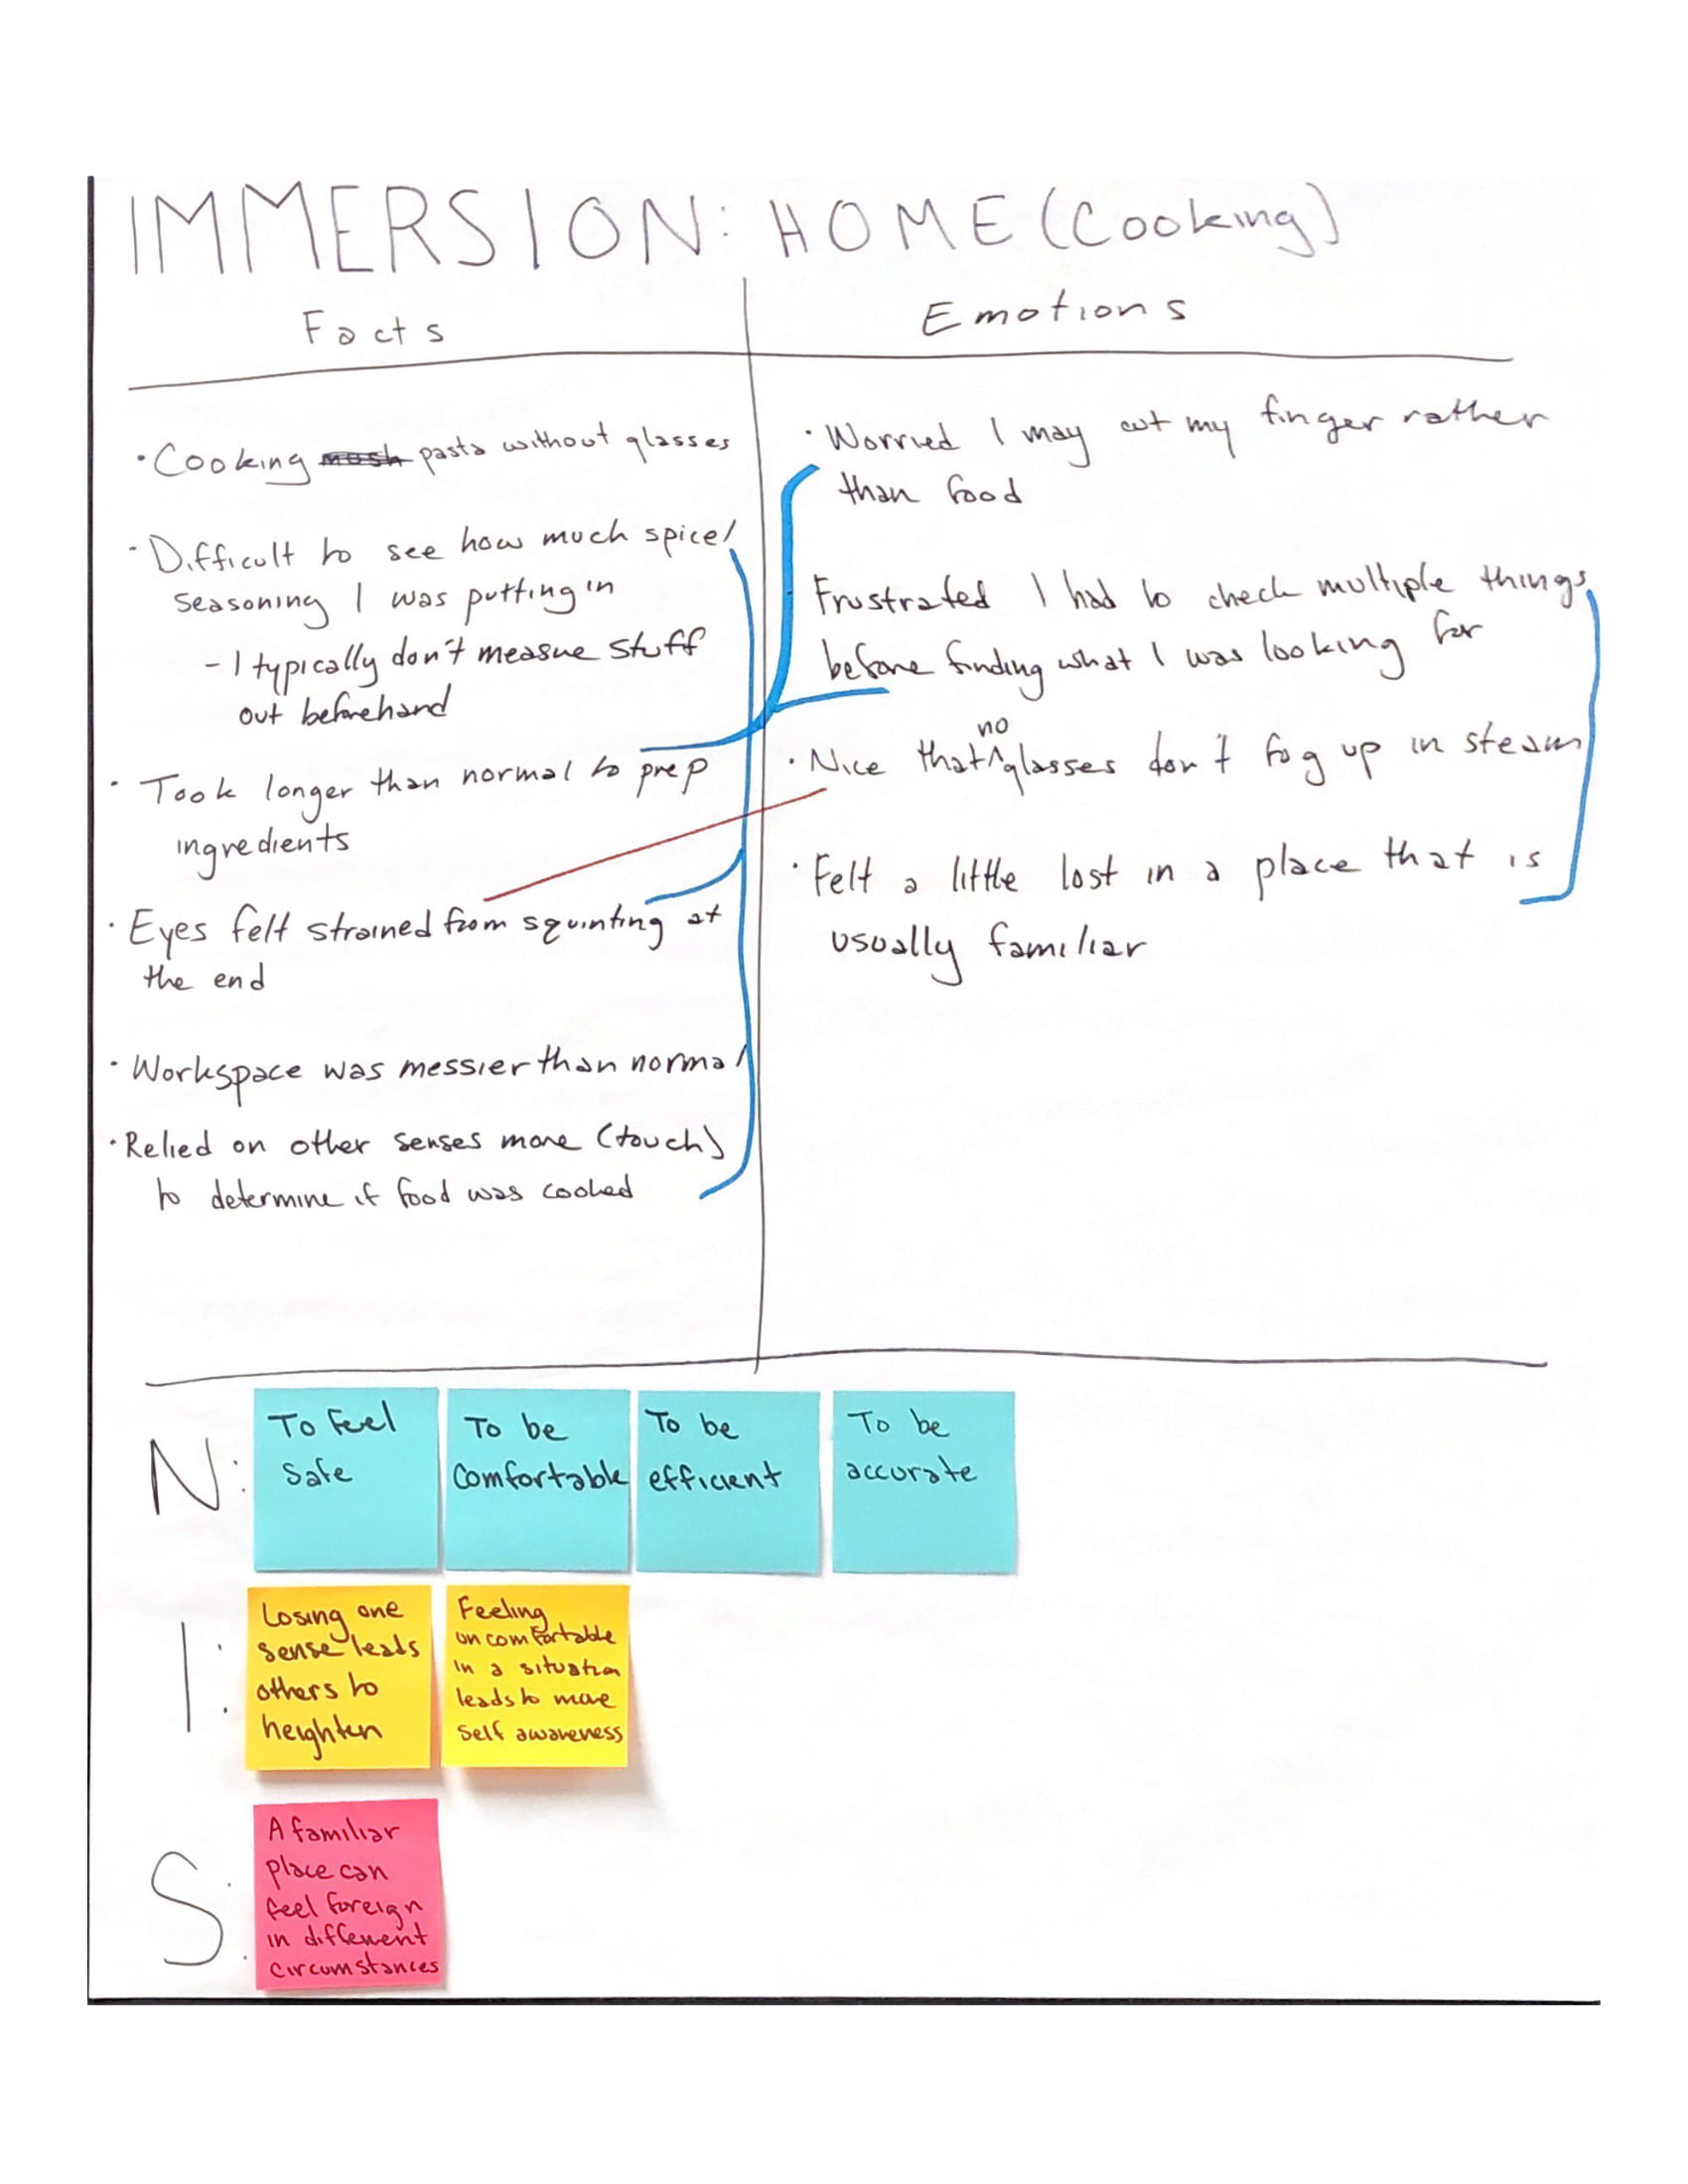 IMMERSION: HOME (Cooking)
Facts
· Cooking pasta without glasses
· Difficult to see how much spice/
seasoning I was putting in
- I typically don't measue stuff
out beforehand
· Took longer than normal to prep
ingredients
· Eyes felt strained from squinting at
the end
· Workspace was messier than normal
· Relied on other senses more (touch)
to determine if food was cooked
Emotions
· Worried I may cut my finger rather
than food
· Frustrated I had to check multiple things
before finding what I was looking for
no
· Nice that ^ glasses don't fog up in steam
· Felt a little lost in a place that is
usually familiar
N:
To feel
safe
To be
comfortable
To be
efficient
To be
accurate
I:
Losing one
sense leads
others to
heighten
Feeling
uncomfortable
in a situation
leads to more
self awareness
S:
A familiar
place can
feel foreign
in different
circumstances